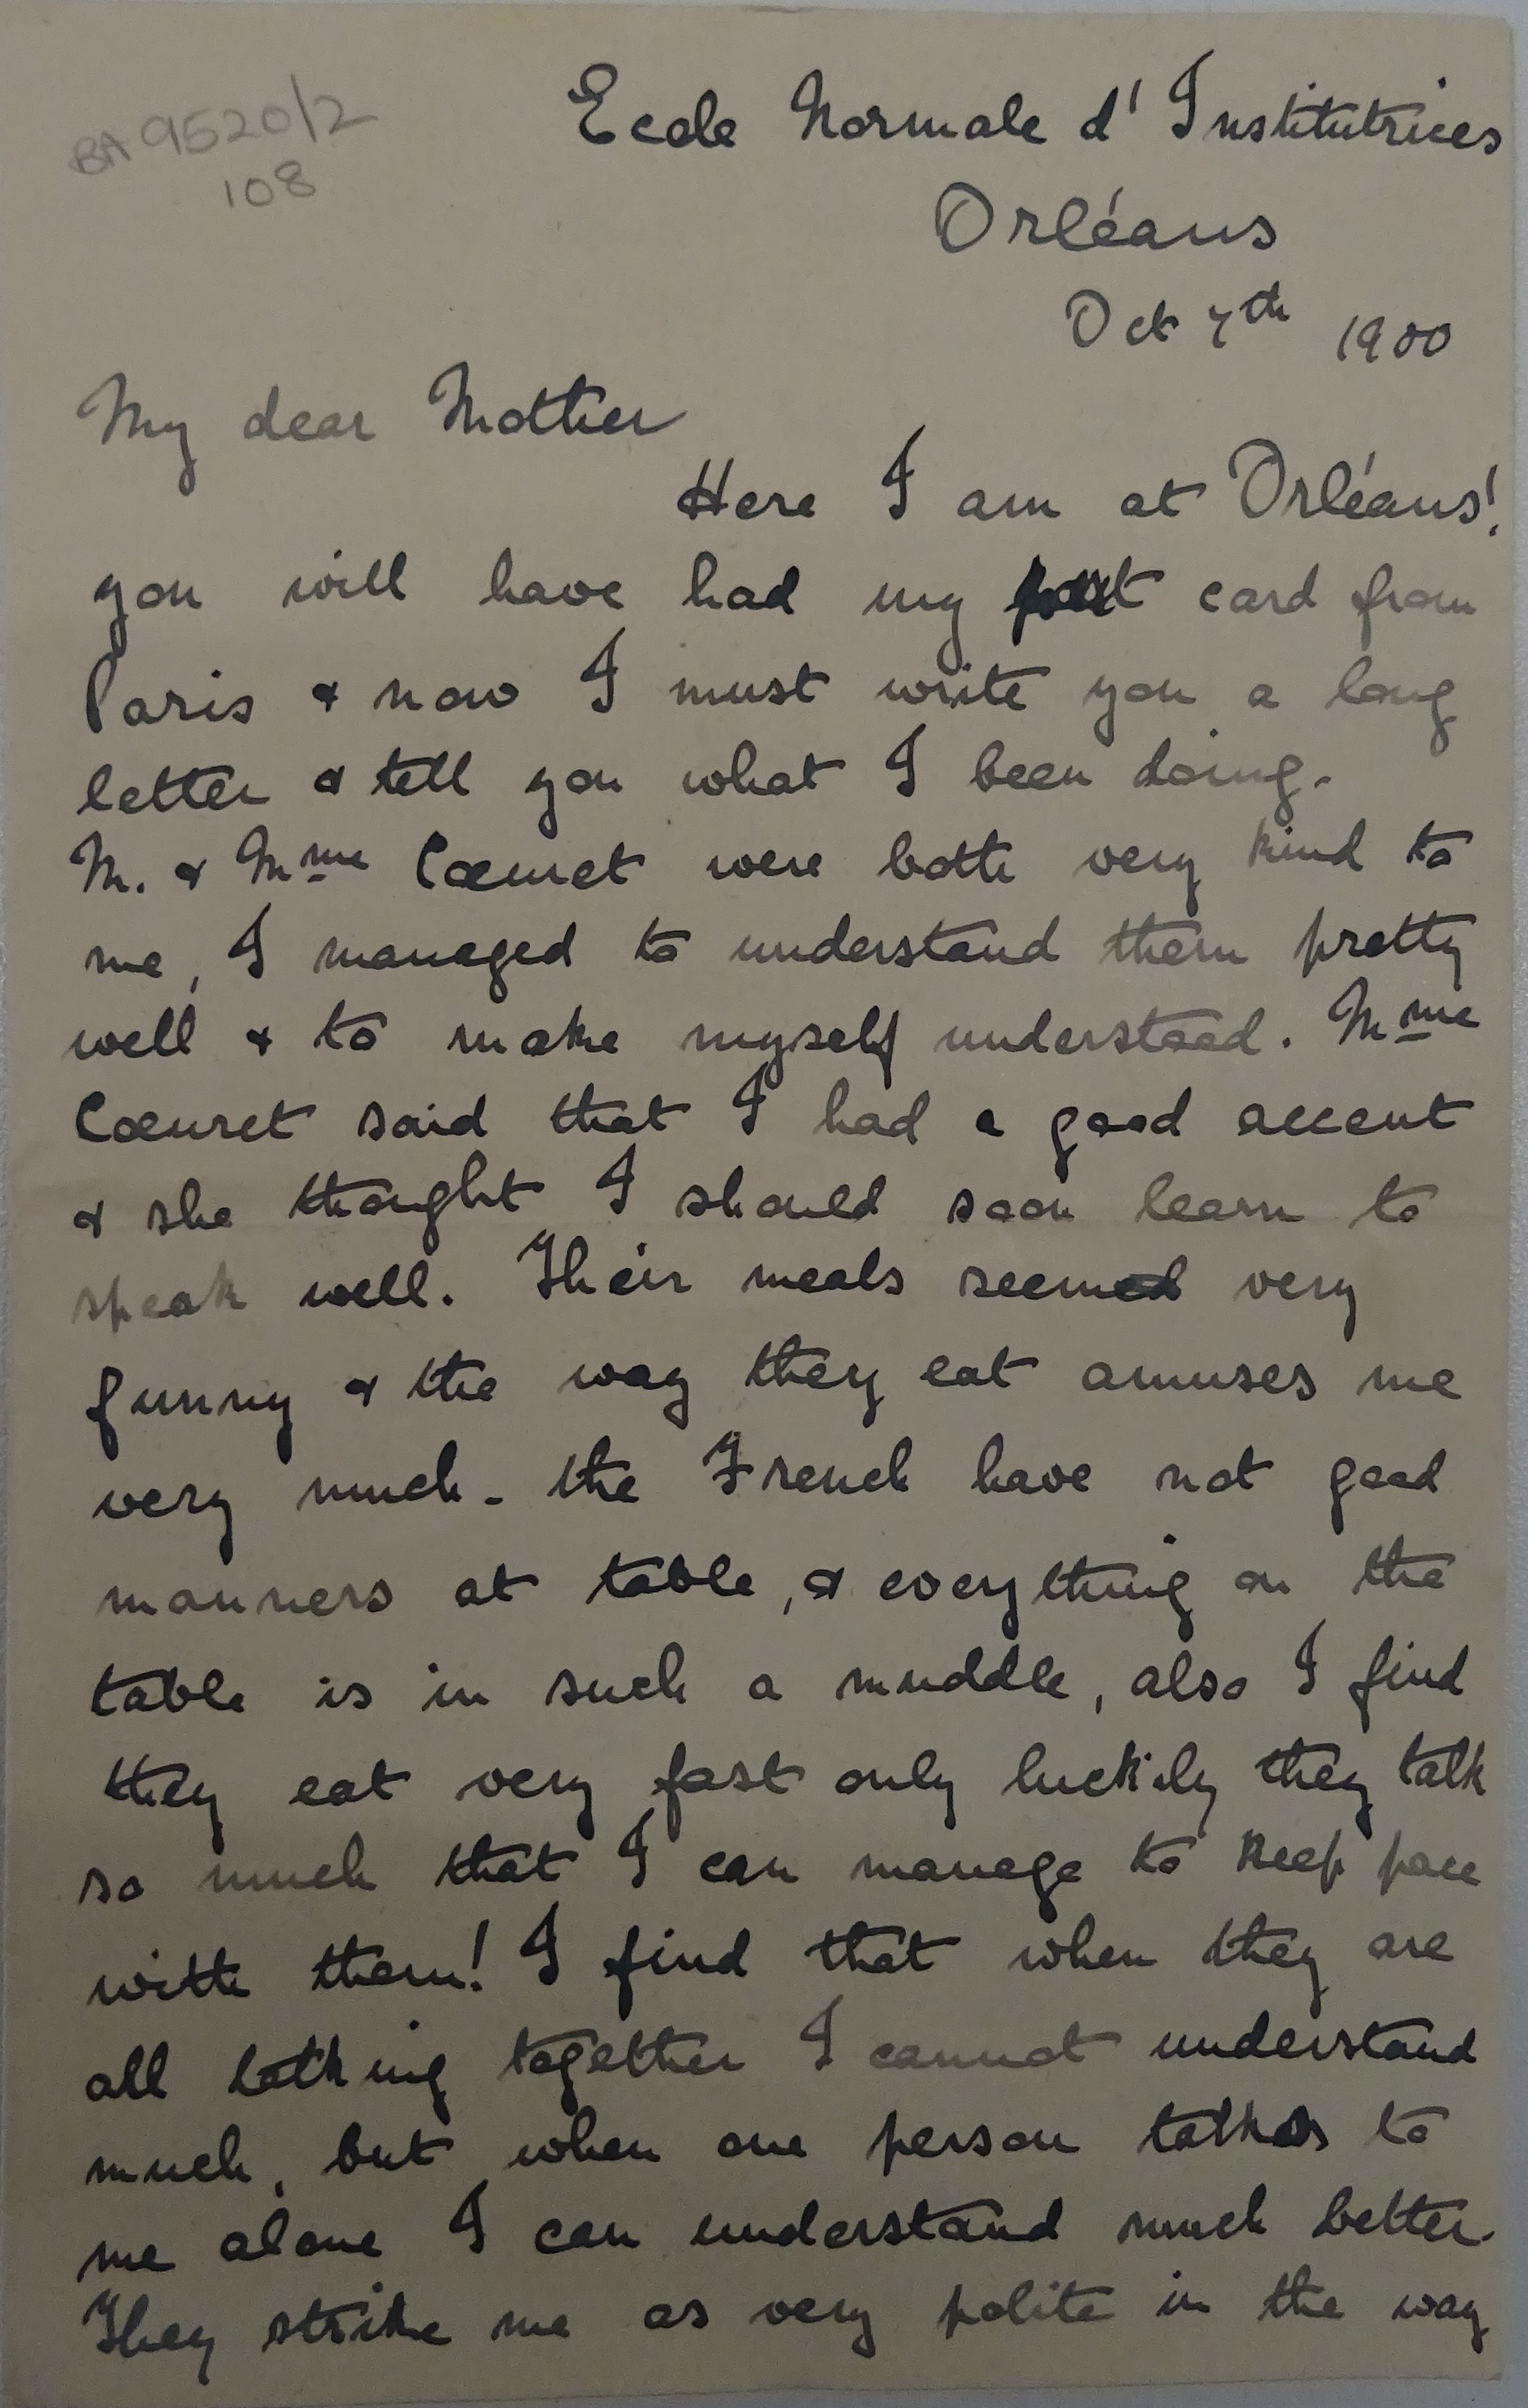 BA 9520/2
108
Ecole Normale d'Institutrices
Orléans
Oct 7th 1900
My dear Mother
Here I am at Orléans!
you will have had my post card from
Paris & now I must write you a long
letter & tell you what I been doing.
M. & Mme Cœuret were both very kind to
me, I managed to understand them pretty
well & to make myself understood. Mme
Cœuret said that I had a good accent
& she thought I should soon learn to
speak well. Their meals seemed very
funny & the way they eat amuses me
very much - the French have not good
manners at table, & everything on the
table is in such a muddle, also I find
they eat very fast only luckily they talk
so much that I can manage to keep pace
with them! I find that when they are
all talking together I cannot understand
much, but when one person talks to
me alone I can understand much better.
They strike me as very polite in the way